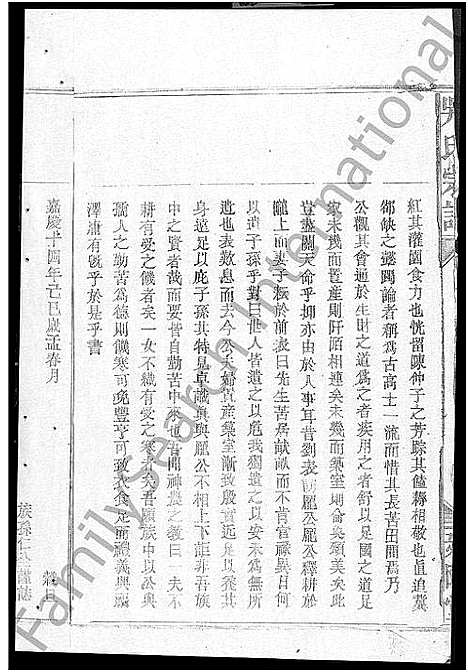 吳氏宗譜
紅其灌園食力也恍留陳仲子之芳踪其饁耨相敬也眞追冀
郤缺之懿躅論者稱爲古高士一流而惜其長苦田間焉乃
公觀其會通於生財之道爲之者疾用之者舒以足國之道足
家未幾而置產則阡陌相連矣未幾而築室則侖奐頌美矣此
豈盡關天命乎抑亦由於人事耳昔劉表嘗龐公龐公釋耕於
隴上而妻子耘於前表曰先生苦居畎畝而不肯官祿異日何
以遺子孫乎對曰世人皆遺之以危我獨遺之以安未爲無所
遺也表歎息而去今公夫婦貲產築室漸致殷富遺之以安
身遠足以庇子孫其特見卓識眞與龐公不相上下詎非吾族
中之賢者哉而要皆自勤苦中來也吾聞神農之教曰一夫不
耕有受之饑者矣一女不織有受之寒者矣吾願族中以公與
孺人之勤苦爲德則饑寒可免豐亨可致衣食足而禮義興厥
澤庸有旣乎於是乎書
嘉慶十四年己巳歲孟春月
族孫
謹誌
FamilySearch International